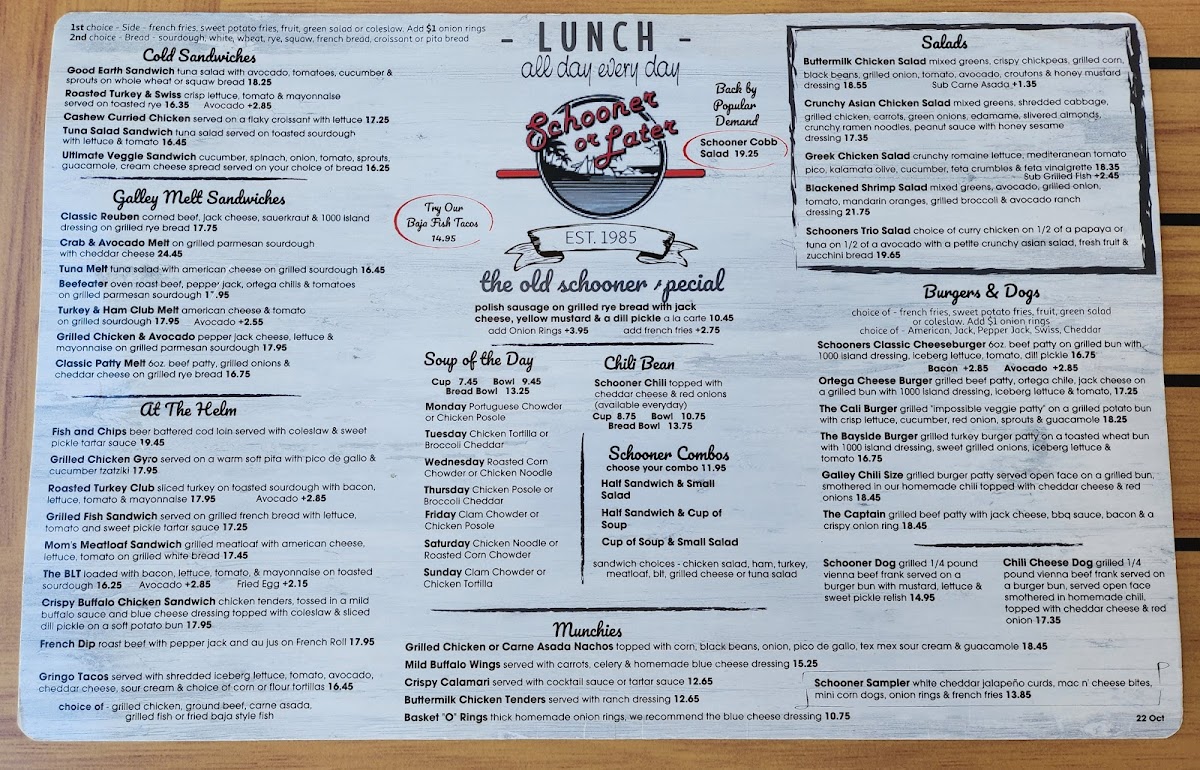 1st choice - Side - french fries, sweet potato fries, fruit, green salad or coleslaw. Add $1 onion rings
2nd choice - Bread - sourdough, white, wheat, rye, squaw, french bread, croissant or pita bread
Cold Sandwiches
Good Earth Sandwich tuna salad with avocado, tomatoes, cucumber &
sprouts on whole wheat or squaw bread 18.25
Roasted Turkey & Swiss crisp lettuce, tomato & mayonnaise
served on toasted rye 16.35 Avocado +2.85
Cashew Curried Chicken served on a flaky croissant with lettuce 17.25
Tuna Salad Sandwich tuna salad served on toasted sourdough
with lettuce & tomato 16.45
Ultimate Veggie Sandwich cucumber, spinach, onion, tomato, sprouts,
guacamole, cream cheese spread served on your choice of bread 16.25
Galley Melt Sandwiches
Classic Reuben corned beef, jack cheese, sauerkraut & 1000 island
dressing on grilled rye bread 17.75
Crab & Avocado Melt on grilled parmesan sourdough
with cheddar cheese 24.45
Tuna Melt tuna salad with american cheese on grilled sourdough 16.45
Beefeater oven roast beef, pepper jack, ortega chilis & tomatoes
on grilled parmesan sourdough
Turkey & Ham Club Melt american cheese & tomato
on grilled sourdough 17.95 Avocado +2.55
Grilled Chicken & Avocado pepper jack cheese, lettuce &
mayonnaise on grilled parmesan sourdough 17.95
Classic Patty Melt 6oz. beef patty, grilled onions &
cheddar cheese on grilled rye bread 16.75
At The Helm
Fish and Chips beer battered cod loin served with coleslaw & sweet
pickle tartar sauce 19.45
Grilled Chicken Gyro served on a warm soft pita with pico de gallo &
cucumber tzatziki 17.95
Roasted Turkey Club sliced turkey on toasted sourdough with bacon,
lettuce, tomato & mayonnaise 17.95 Avocado +2.85
Grilled Fish Sandwich served on grilled french bread with lettuce,
tomato and sweet pickle tartar sauce 17.25
Mom's Meatloaf Sandwich grilled meatloaf with american cheese,
lettuce, tomato on grilled white bread 17.45
The BLT loaded with bacon, lettuce, tomato, & mayonnaise on toasted
sourdough 16.25 Avocado +2.85 Fried Egg +2.15
Crispy Buffalo Chicken Sandwich chicken tenders, tossed in a mild
buffalo sauce and blue cheese dressing topped with coleslaw & sliced
dill pickle on a soft potato bun 17.95
French Dip roast beef with pepper jack and au jus on French Roll 17.95
Gringo Tacos served with shredded iceberg lettuce, tomato, avocado,
cheddar cheese, sour cream & choice of corn or flour tortillas 16.45
choice of - grilled chicken, ground beef, carne asada,
grilled fish or fried baja style fish
- LUNCH -
all day every day
Schooner
or Later
EST. 1985
Back by
Popular
Demand
Schooner Cobb
Salad 19.25
Try Our
Baja Fish Tacos
14.95
the old schooner special
polish sausage on grilled rye bread with jack
cheese, yellow mustard & a dill pickle a la carte 10.45
add Onion Rings +3.95 add french fries +2.75
Soup of the Day
Cup 7.45 Bowl 9.45
Bread Bowl 13.25
Monday Portuguese Chowder
or Chicken Posole
Tuesday Chicken Tortilla or
Broccoli Cheddar
Wednesday Roasted Corn
Chowder or Chicken Noodle
Thursday Chicken Posole or
Broccoli Cheddar
Friday Clam Chowder or
Chicken Posole
Saturday Chicken Noodle or
Roasted Corn Chowder
Sunday Clam Chowder or
Chicken Tortilla
Chili Bean
Schooner Chili topped with
cheddar cheese & red onions
(available everyday)
Cup 8.75 Bowl 10.75
Bread Bowl 13.75
Schooner Combos
choose your combo 11.95
Half Sandwich & Small
Salad
Half Sandwich & Cup of
Soup
Cup of Soup & Small Salad
sandwich choices - chicken salad, ham, turkey,
meatloaf, blt, grilled cheese or tuna salad
Munchies
Grilled Chicken or Carne Asada Nachos topped with corn, black beans, onion, pico de gallo, tex mex sour cream & guacamole 18.45
Mild Buffalo Wings served with carrots, celery & homemade blue cheese dressing 15.25
Crispy Calamari served with cocktail sauce or tartar sauce 12.65
Buttermilk Chicken Tenders served with ranch dressing 12.65
Basket "O" Rings thick homemade onion rings, we recommend the blue cheese dressing 10.75
Salads
Buttermilk Chicken Salad mixed greens, crispy chickpeas, grilled corn,
black beans, grilled onion, tomato, avocado, croutons & honey mustard
dressing 18.55 Sub Carne Asada +1.35
Crunchy Asian Chicken Salad mixed greens, shredded cabbage,
grilled chicken, carrots, green onions, edamame, slivered almonds,
crunchy ramen noodles, peanut sauce with honey sesame
dressing 17.35
Greek Chicken Salad crunchy romaine lettuce, mediterranean tomato
pico, kalamata olive, cucumber, feta crumbles & feta vinalgrette 18.35
Sub Grilled Fish +2.45
Blackened Shrimp Salad mixed greens, avocado, grilled onion,
tomato, mandarin oranges, grilled broccoli & avocado ranch
dressing 21.75
Schooners Trio Salad choice of curry chicken on 1/2 of a papaya or
tuna on 1/2 of a avocado with a petite crunchy asian salad, fresh fruit &
zucchini bread 19.65
Burgers & Dogs
choice of - french fries, sweet potato fries, fruit, green salad
or coleslaw. Add $1 onion rings
choice of - American, Jack, Pepper Jack, Swiss, Cheddar
Schooners Classic Cheeseburger 6oz. beef patty on grilled bun with
1000 island dressing, iceberg lettuce, tomato, dill pickle 16.75
Bacon +2.85 Avocado +2.85
Ortega Cheese Burger grilled beef patty, ortega chile, jack cheese on
a grilled bun with 1000 island dressing, iceberg lettuce & tomato, 17.25
The Cali Burger grilled "impossible veggie patty" on a grilled potato bun
with crisp lettuce, cucumber, red onion, sprouts & guacamole 18.25
The Bayside Burger grilled turkey burger patty on a toasted wheat bun
with 1000 island dressing, sweet grilled onions, iceberg lettuce &
tomato 16.75
Galley Chili Size grilled burger patty served open face on a grilled bun,
smothered in our homemade chili topped with cheddar cheese & red
onions 18.45
The Captain grilled beef patty with jack cheese, bbq sauce, bacon & a
crispy onion ring 18.45
Schooner Dog grilled 1/4 pound
vienna beef frank served on a
burger bun with mustard, lettuce &
sweet pickle relish 14.95
Chili Cheese Dog grilled 1/4
pound vienna beef frank served on
a burger bun, served open face
smothered in homemade chili,
topped with cheddar cheese & red
onion 17.35
Schooner Sampler white cheddar jalapeño curds, mac n' cheese bites,
mini corn dogs, onion rings & french fries 13.85
22 Oct